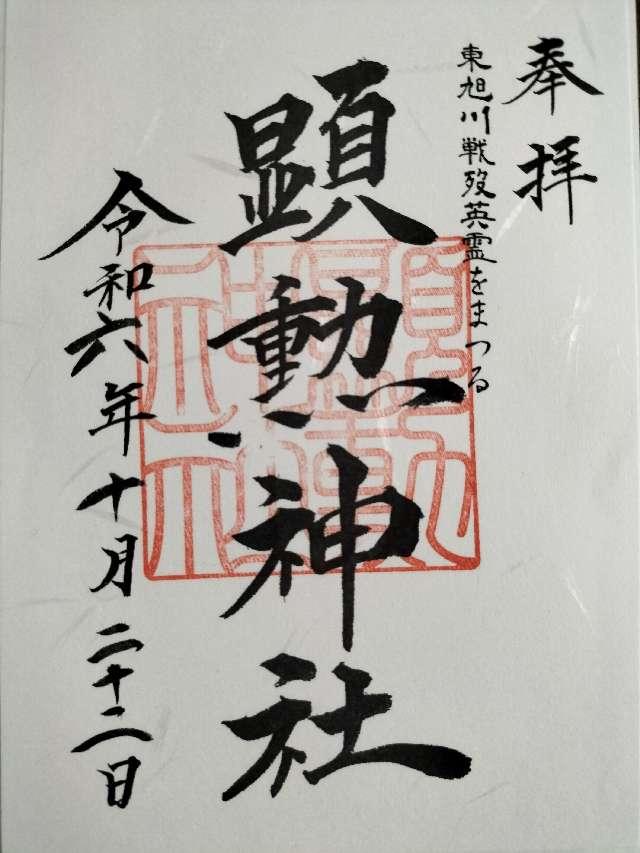 奉拝
東旭川戦歿英霊をまつる
顕勲神社
令和六年十月二十二日